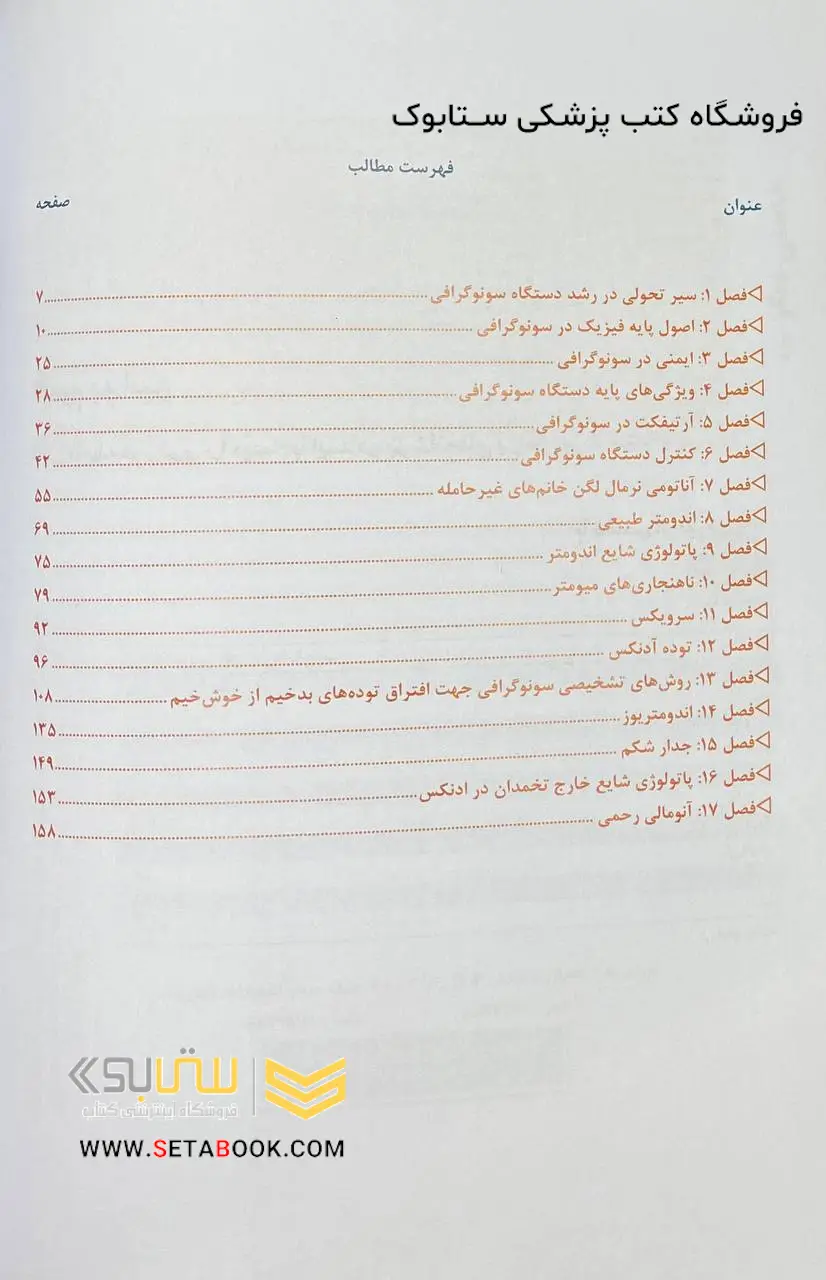 فروشگاه کتب پزشکی ستابوک
فهرست مطالب
عنوان صفحه
فصل ۱: سیر تحولی در رشد دستگاه سونوگرافی ........ ۷
فصل ۲: اصول پایه فیزیک در سونوگرافی ........ ۱۰
فصل ۳: ایمنی در سونوگرافی ........ ۲۵
فصل ۴: ویژگی‌های پایه دستگاه سونوگرافی ........ ۲۸
فصل ۵: آرتیفکت در سونوگرافی ........ ۳۶
فصل ۶: کنترل دستگاه سونوگرافی ........ ۴۲
فصل ۷: آناتومی نرمال لگن خانم‌های غیرحامله ........ ۵۵
فصل ۸: اندومتر طبیعی ........ ۶۹
فصل ۹: پاتولوژی شایع اندومتر ........ ۷۵
فصل ۱۰: ناهنجاری‌های میومتر ........ ۷۹
فصل ۱۱: سرویکس ........ ۹۲
فصل ۱۲: توده آدنکس ........ ۹۶
فصل ۱۳: روش‌های تشخیصی سونوگرافی جهت افتراق توده‌های بدخیم از خوش‌خیم ........ ۱۰۸
فصل ۱۴: اندومتریوز ........ ۱۳۵
فصل ۱۵: جدار شکم ........ ۱۴۹
فصل ۱۶: پاتولوژی شایع خارج تخمدان در ادنکس ........ ۱۵۳
فصل ۱۷: آنومالی رحمی ........ ۱۵۸
ستابوک
فروشگاه اینترنتی کتاب
WWW.SETABOOK.COM